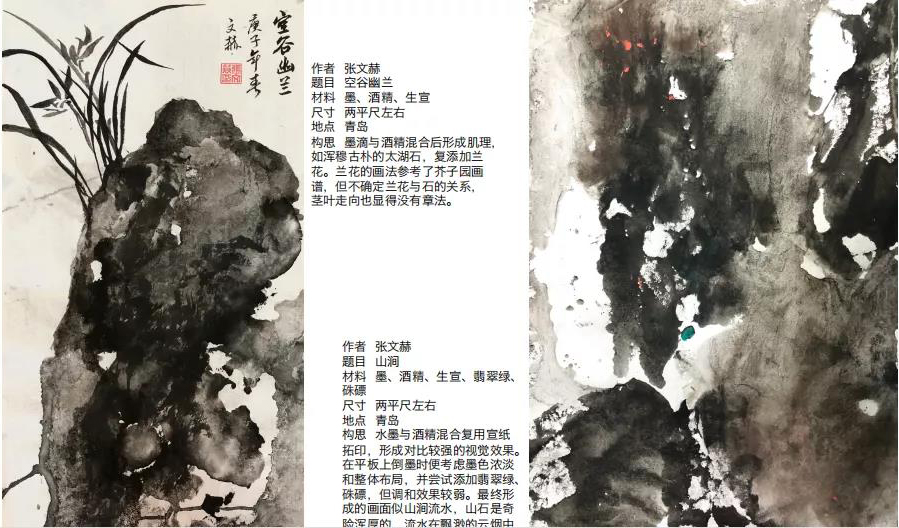 空谷幽兰
庚子年春
文赫
作者 张文赫
题目 空谷幽兰
材料 墨、酒精、生宣
尺寸 两平尺左右
地点 青岛
构思 墨滴与酒精混合后形成肌理，
如浑穆古朴的太湖石，复添加兰
花。兰花的画法参考了芥子园画
谱，但不确定兰花与石的关系，
茎叶走向也显得没有章法。
作者 张文赫
题目 山涧
材料 墨、酒精、生宣、翡翠绿、
硃磦
尺寸 两平尺左右
地点 青岛
构思 水墨与酒精混合复用宣纸
拓印，形成对比较强的视觉效果。
在平板上倒墨时便考虑墨色浓淡
和整体布局，并尝试添加翡翠绿、
硃磦，但调和效果较弱。最终形
成的画面似山涧流水，山石是奇
险浑厚的，流水在飘渺的云烟中